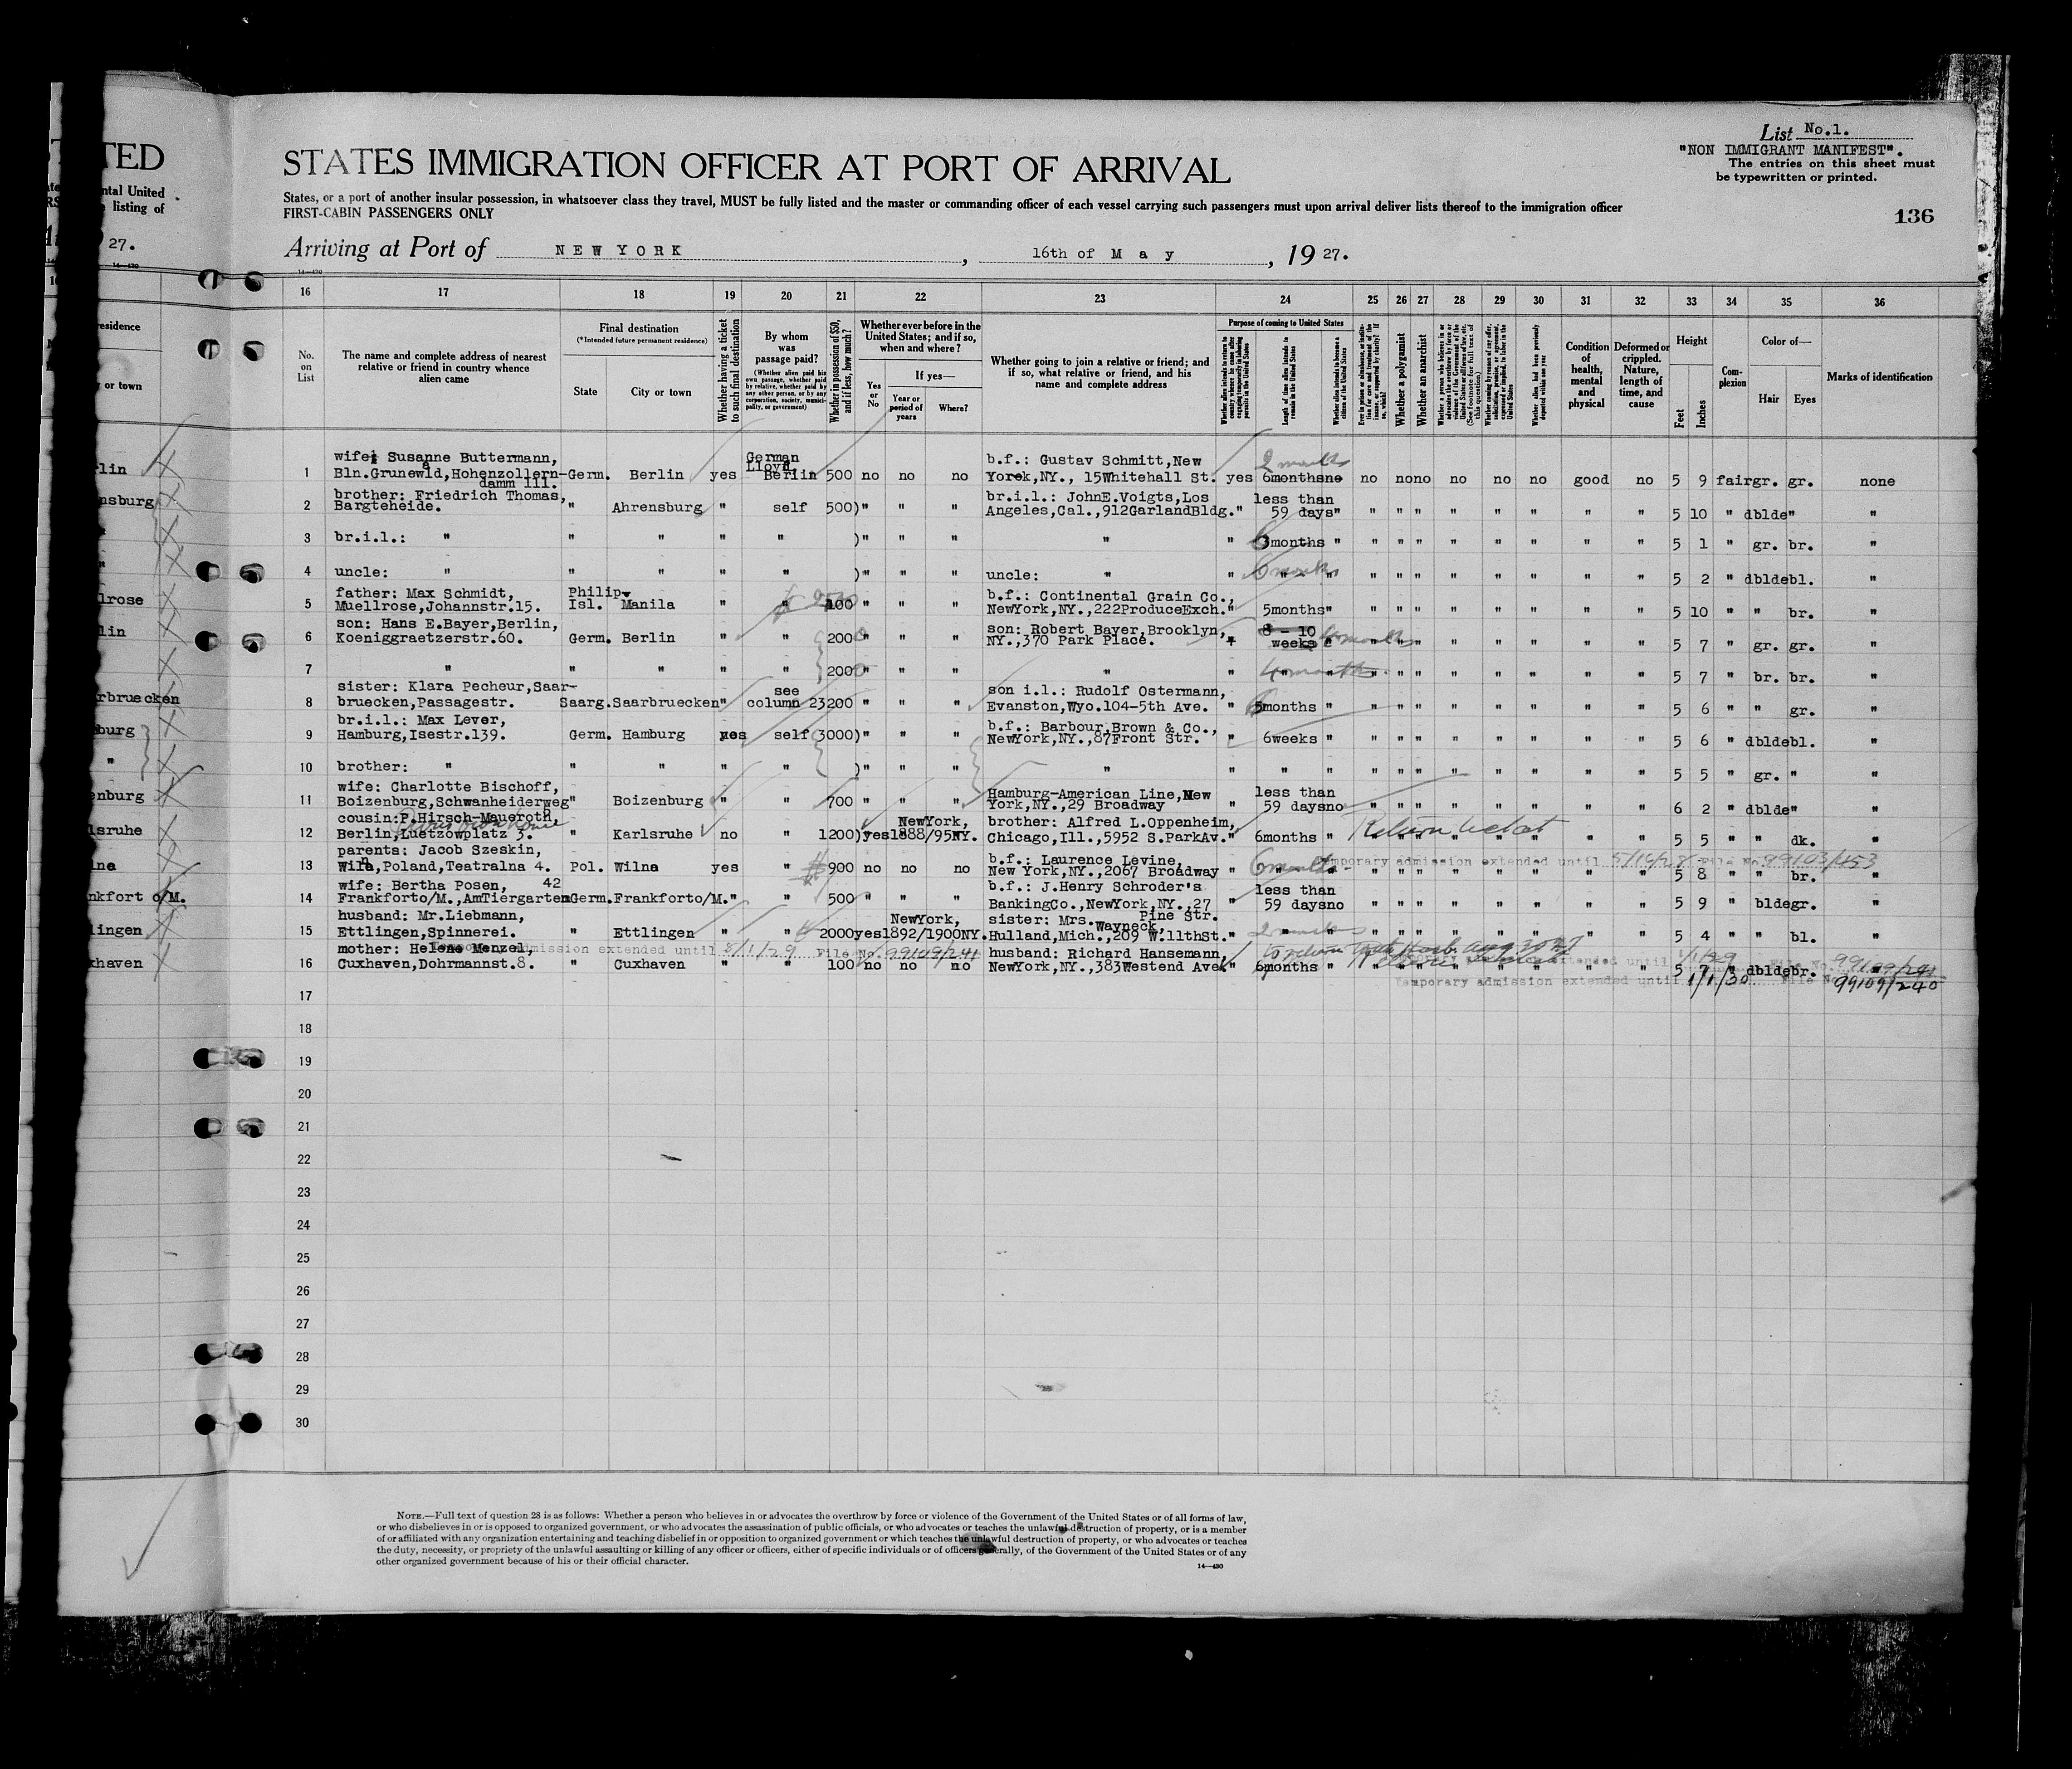 TED
ntal United
listing of
27.
14—430
esidence
or town
lin
nsburg
lrose
lin
rbruecken
burg
"
enburg
lsruhe
lna
nkfort o/M.
lingen
xhaven
List No.1.
"NON IMMIGRANT MANIFEST".
The entries on this sheet must
be typewritten or printed.
136
STATES IMMIGRATION OFFICER AT PORT OF ARRIVAL
States, or a port of another insular possession, in whatsoever class they travel, MUST be fully listed and the master or commanding officer of each vessel carrying such passengers must upon arrival deliver lists thereof to the immigration officer
FIRST-CABIN PASSENGERS ONLY
Arriving at Port of NEW YORK, 16th of May, 1927.
14—430
16 17 18 19 20 21 22 23 24 25 26 27 28 29 30 31 32 33 34 35 36
No. on List
The name and complete address of nearest relative or friend in country whence alien came
Final destination
(*Intended future permanent residence)
State
City or town
Whether having a ticket to such final destination
By whom was passage paid?
(Whether alien paid his own passage, whether paid by relative, whether paid by any other person, or by any corporation, society, municipality, or government)
Whether in possession of $50, and if less, how much?
Whether ever before in the United States; and if so, when and where?
Yes or No
If yes—
Year or period of years
Where?
Whether going to join a relative or friend; and if so, what relative or friend, and his name and complete address
Purpose of coming to United States
Length of time alien intends to remain in the United States
Whether alien intends to become a citizen of the United States
Whether a polygamist
Whether an anarchist
Whether alien had been previously deported within one year
Condition of health, mental and physical
Deformed or crippled. Nature, length of time, and cause
Height
Feet
Inches
Complexion
Color of—
Hair
Eyes
Marks of identification
1 wife: Susanne Buttermann, Bln.Grunewald,Hohenzollerndamm 111. Germ. Berlin yes German Lloyd Berlin 500 no no no b.f.: Gustav Schmitt,New Yorek,NY., 15Whitehall St. yes 2 months 6months no no no no no no no good no 5 9 fair gr. gr. none
2 brother: Friedrich Thomas, Bargteheide. " Ahrensburg " self 500) " " " br.i.l.: JohnE.Voigts,Los Angeles,Cal.,912GarlandBldg. " less than 59 days " " " " " " " " " 5 10 " dblde " "
3 br.i.l.: " " " " " )" " " " " 6months " " " " " " " " " 5 1 " gr. br. "
4 uncle: " " " " " )" " " uncle: " " 6 months " " " " " " " " " 5 2 " dblde bl. "
5 father: Max Schmidt, Muellrose,Johannstr.15. Philip. Isl. Manila " " 100 " " " b.f.: Continental Grain Co., NewYork,NY.,222ProduceExch. " 5months " " " " " " " " " 5 10 " " br. "
6 son: Hans E.Bayer,Berlin, Koeniggraetzerstr.60. Germ. Berlin " " 200 " " " son: Robert Bayer,Brooklyn, NY.,370 Park Place. " 8 - 10 weeks 4 months " " " " " " " " 5 7 " gr. gr. "
7 " " " " " 200 " " " " " 4 months " " " " " " " " 5 7 " br. br. "
8 sister: Klara Pecheur,Saarbruecken,Passagestr. Saarg. Saarbruecken " see column 23 200 " " " son i.l.: Rudolf Ostermann, Evanston,Wyo.104-5th Ave. " 6months " " " " " " " " " 5 6 " " gr. "
9 br.i.l.: Max Lever, Hamburg,Isestr.139. Germ. Hamburg yes self 3000) " " " b.f.: Barbour,Brown & Co., NewYork,NY.,87Front Str. " 6weeks " " " " " " " " " 5 6 " dblde bl. "
10 brother: " " " " " )" " " " " " " " " " " " " " " " 5 5 " gr. " "
11 wife: Charlotte Bischoff, Boizenburg,Schwanheiderweg " Boizenburg " " 700 " " " Hamburg-American Line,New York,NY.,29 Broadway less than 59 days no " " " " " " " " 6 2 " dblde " "
12 cousin:P.Hirsch-Maueroth, Berlin,Luetzowplatz 3. " Karlsruhe no " 1200) yes 1888/95 NewYork, NY. brother: Alfred L.Oppenheim, Chicago,Ill.,5952 S.ParkAv. " 6months " Return ticket " " " " " " " " 5 5 " " dk. "
13 parents: Jacob Szeskin, Wilna,Poland,Teatralna 4. Pol. Wilna yes " 900 no no no b.f.: Laurence Levine, New York,NY.,2067 Broadway " 6 months Temporary admission extended until 5/16/28 File No. 99103/453 " " " 5 8 " " br. "
14 wife: Bertha Posen, 42 Frankforto/M.,AmTiergarten Germ. Frankforto/M. " " 500 " " " b.f.: J.Henry Schroder's BankingCo.,NewYork,NY.,27 Pine Str. " less than 59 days no " " " " " " " " 5 9 " blde gr. "
15 husband: Mr.Liebmann, Ettlingen,Spinnerei. " Ettlingen " " 2000 yes 1892/1900 NewYork, NY. sister: Mrs.Wayneck, Hulland,Mich.,209 W.11thSt. " 2 months " " " " " " " " 5 4 " " bl. "
Temporary admission extended until 8/1/29 File No. 99109/241
16 mother: Helene Menzel, Cuxhaven,Dohrmannst.8. " Cuxhaven " " 100 no no no husband: Richard Hansemann NewYork,NY.,383Westend Ave. " 6months " 5 7 " dblde br. "
extended until 1/1/29 File No. 99109/241
Temporary admission extended until 1/1/30 File No. 99109/240
17
18
19
20
21
22
23
24
25
26
27
28
29
30
NOTE.—Full text of question 28 is as follows: Whether a person who believes in or advocates the overthrow by force or violence of the Government of the United States or of all forms of law,
or who disbelieves in or is opposed to organized government, or who advocates the assassination of public officials, or who advocates or teaches the unlawful destruction of property, or is a member
of or affiliated with any organization entertaining and teaching disbelief in or opposition to organized government or which teaches the unlawful destruction of property, or who advocates or teaches
the duty, necessity, or propriety of the unlawful assaulting or killing of any officer or officers, either of specific individuals or of officers generally, of the Government of the United States or of any
other organized government because of his or their official character.
14—430